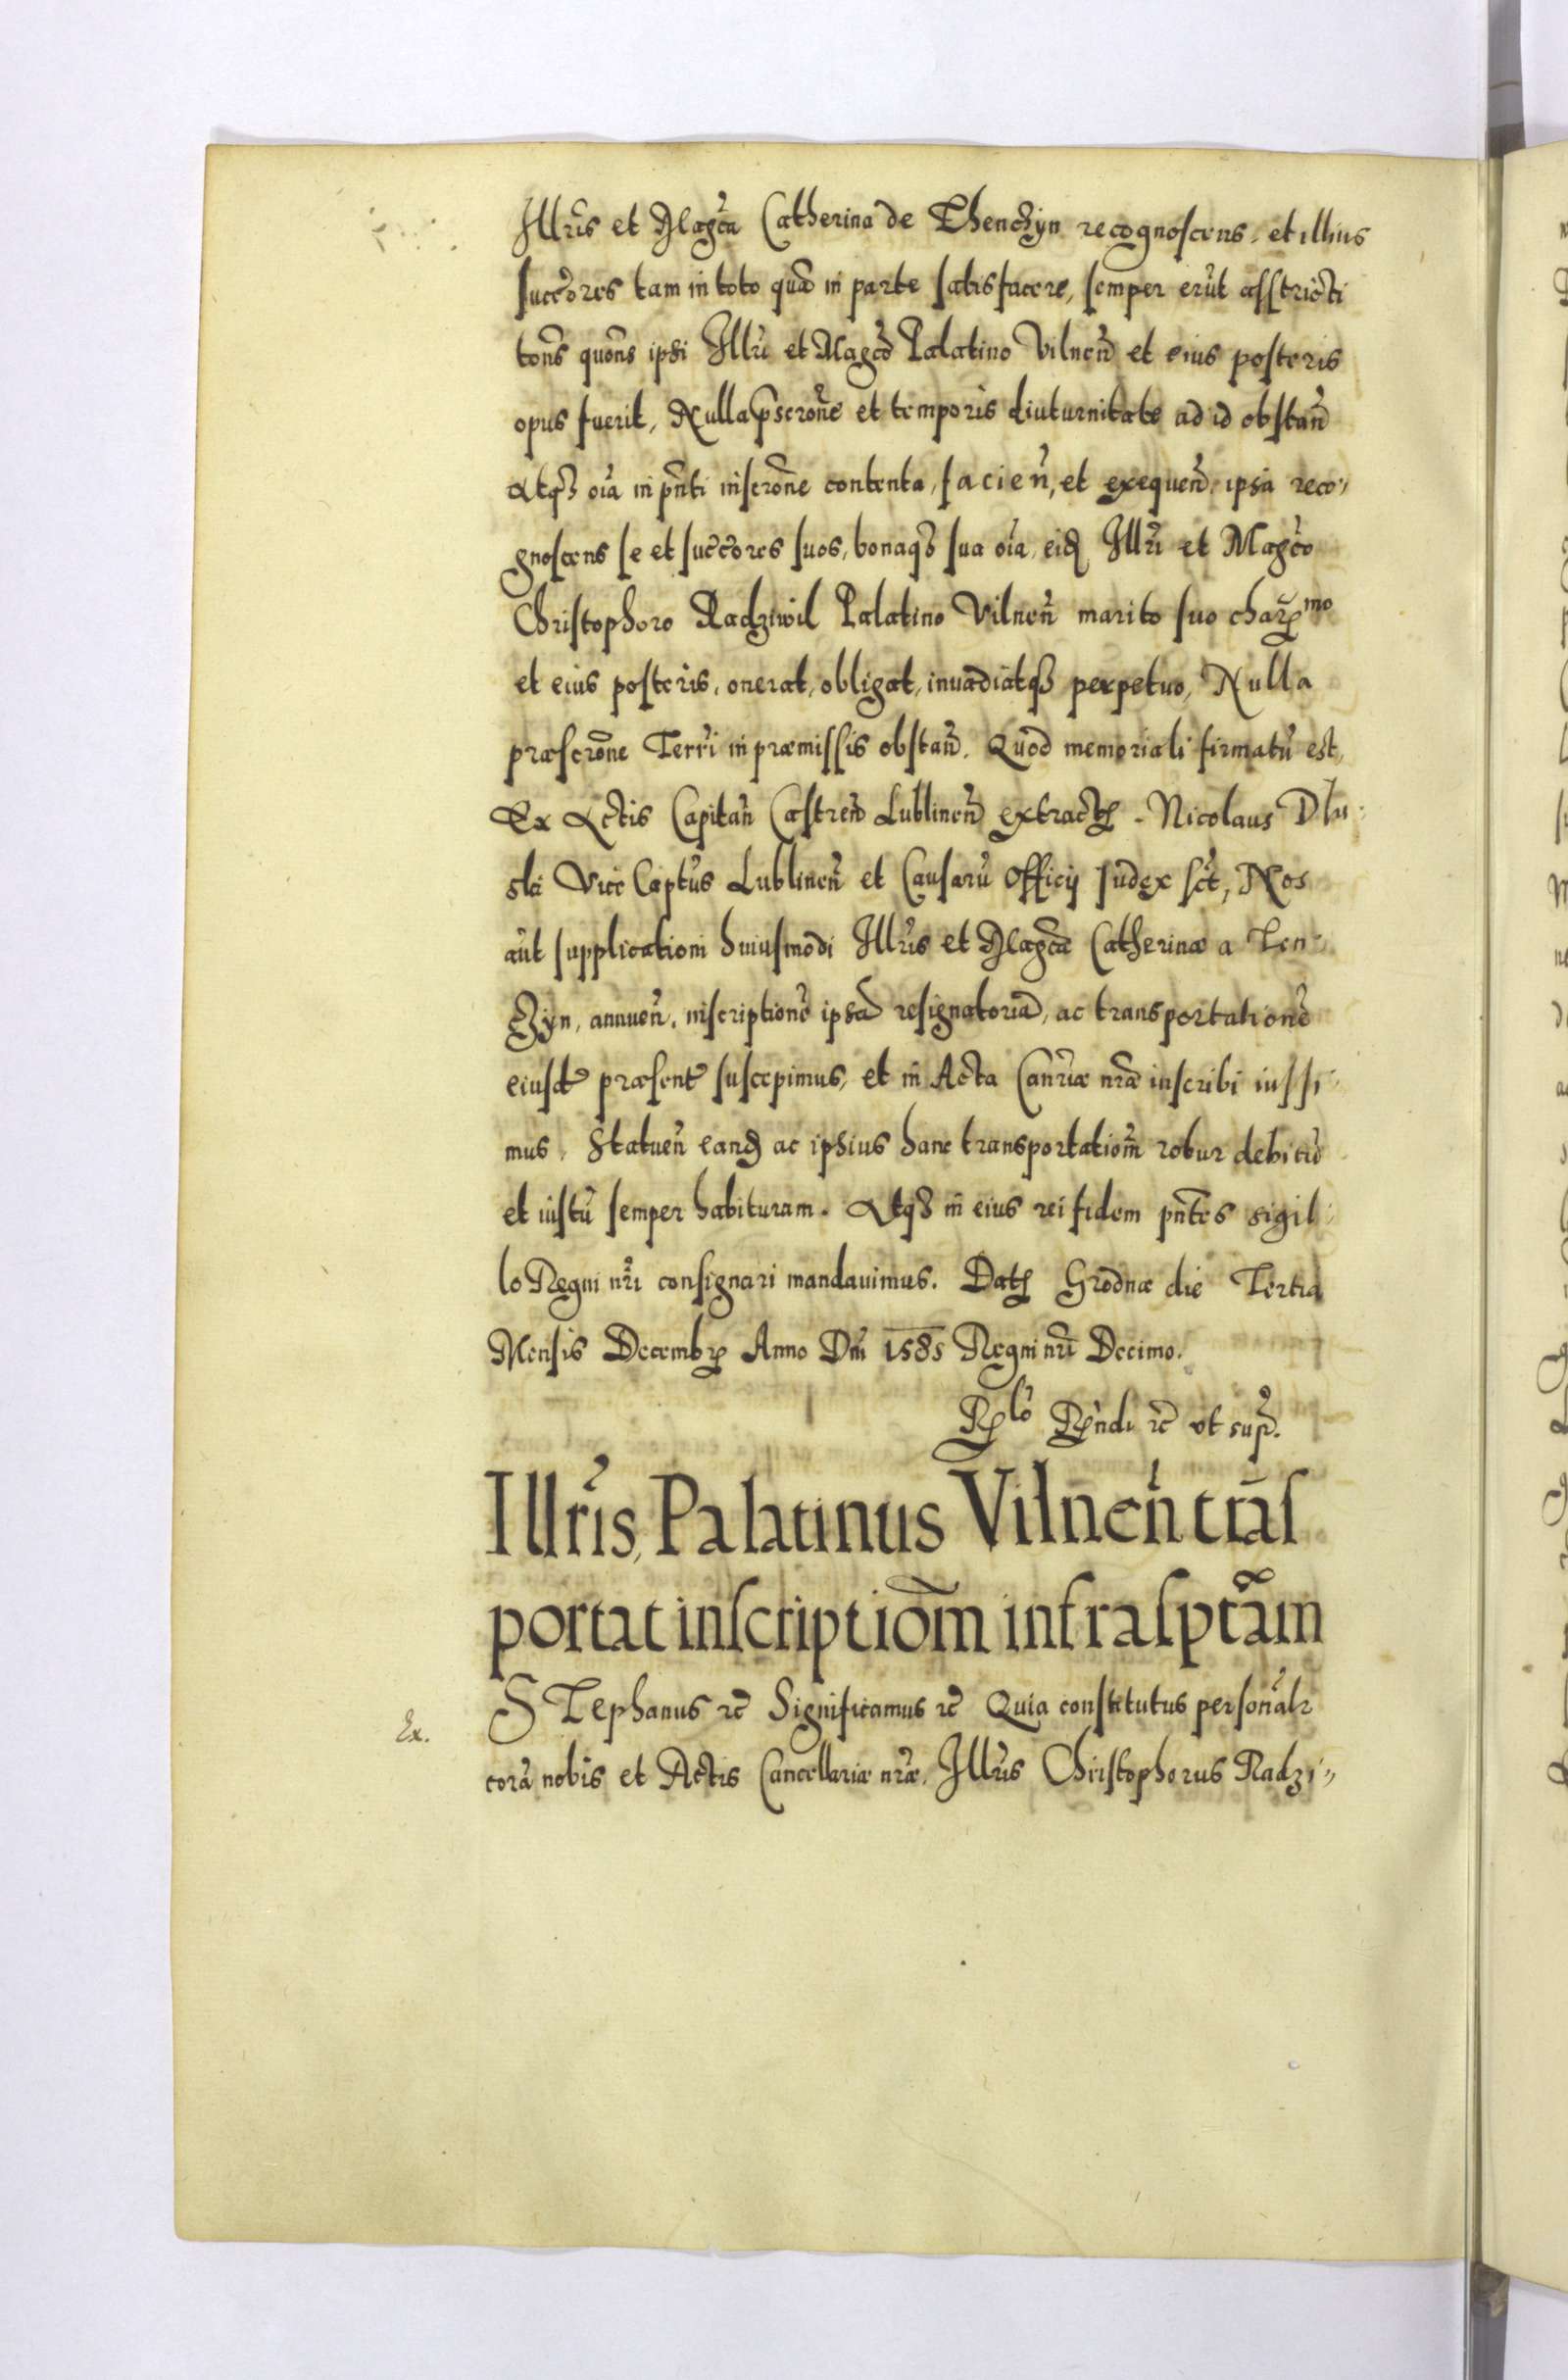 Illris et Magca Catherina de Thenczyn recognoscens, et illius
succores tam in toto quã in parte satisfacere, semper erũt asstricti
tons quons ipsi Illri et Magco Palatino Vilneñ et eius posteris
opus fuerit, Nulla pscrone et temporis diuturnitate ad id obstañ
Atqȝ oĩa in pñti inscrone contenta, facieñ, et exequeñ, ipsa reco„
gnoscens se et succores suos, bonaqȝ sua oĩa, eid Illri et Magco
Christophoro Radziwil Palatino Vilneñ marito suo charmo
et eius posteris, onerat, obligat, inuadiatqȝ perpetuo, Nulla
præscrone Terri in præmissis obstañ. Quod memoriali firmatũ est,
Ex Actis Capitañ Castreñ Lublineñ extract. Nicolaus Dlu
ski Vice Captus Lublineñ et Causarũ Officij Iudex sct, Nos
aũt supplicationi huiusmodi Illris et Magcæ Catherinæ a Ten
czyn, annueñ, inscriptionẽ ipsã resignatoriã, ac transportationẽ
eiusd præsent suscepimus, et in Acta Canriæ nræ inscribi iussi
mus. Statueñ eand ac ipsius hanc transportatiom robur debitũ
et iustũ semper habituram. Atqȝ in eius rei fidem pñtes sigil
lo Regni nri consignari mandauimus. Dat Grodnæ die Tertia
Mensis Decembr Anno Dni 1585 Regni nri Decimo.
Rlo Rndi rc vt supr.
Illris, Palatinus Vilneñ trãs
portat inscriptiom infrasptam
STephanus rc Significamus rc Quia constitutus personalr
Ex.
corã nobis et Actis Cancellariæ nræ, Illris Christophorus Radzi„